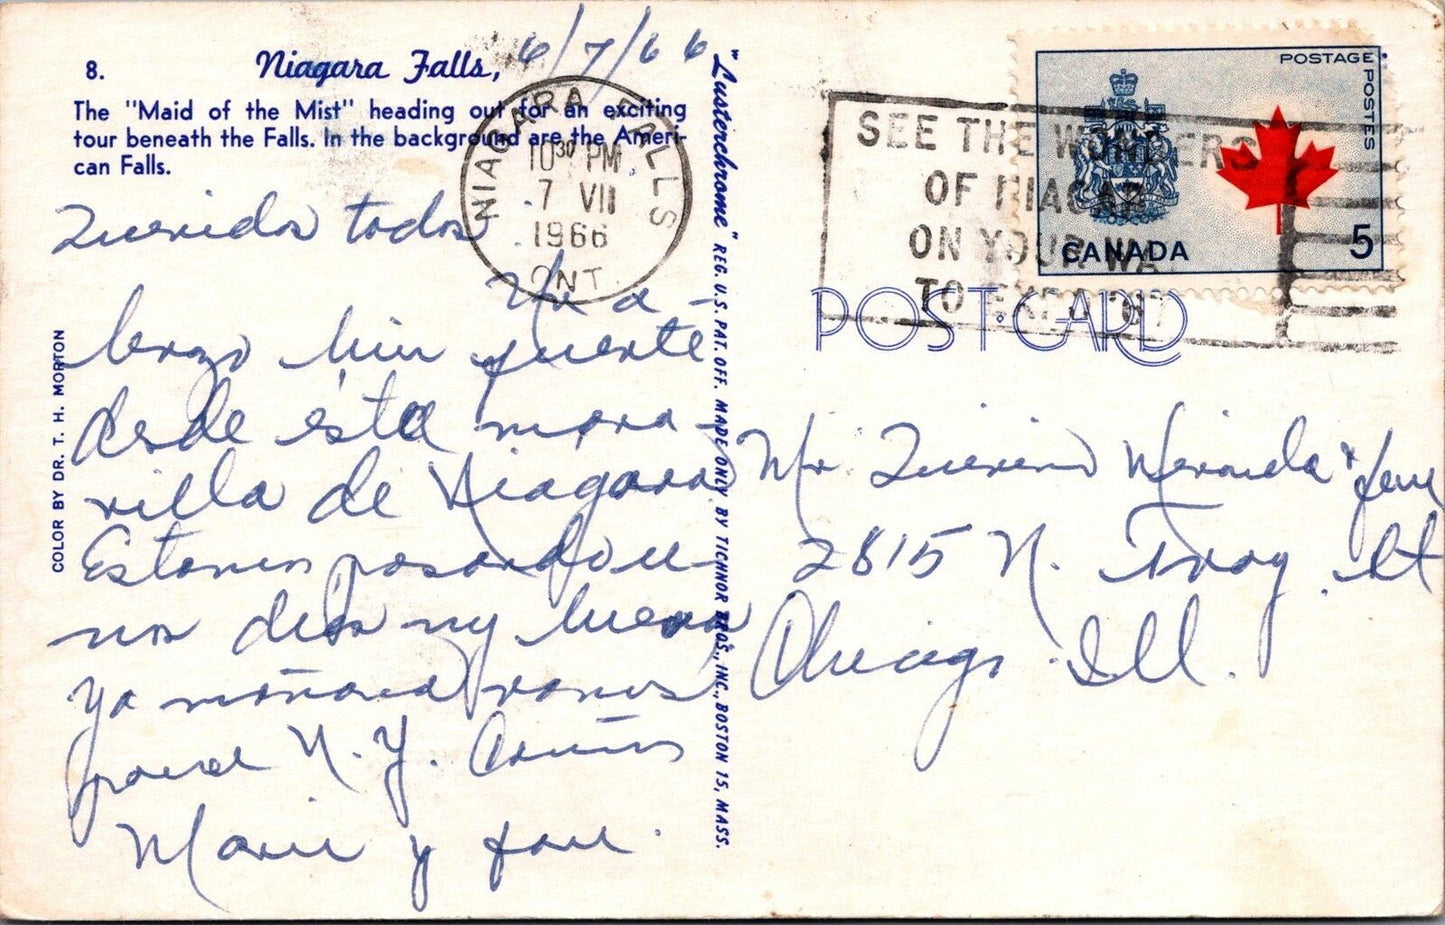 8. Niagara Falls, 6/7/66
The "Maid of the Mist" heading out for an exciting
tour beneath the Falls. In the background are the Ameri-
can Falls.
NIAGARA FALLS
10 30 PM
7 VII
1966
ONT.
Queridos todos
Un a-
brazo bien fuerte
desde ésta mara-
villa de Niagara
Estamos pasandou-
nos dias muy buenos
ya mañana vamos
para N.Y. Cariños
Marie y fam.
COLOR BY DR. T. H. MORTON
"Lusterchrome" REG. U.S. PAT. OFF. MADE ONLY BY TICHNOR BROS., INC., BOSTON 15, MASS.
SEE THE WONDERS
OF NIAGARA
ON YOUR WAY
TO EXPO '67
POSTAGE POSTES
CANADA 5
POST CARD
Mr. Querino Miranda & fam
2815 N. Troy St
Chicago Ill.